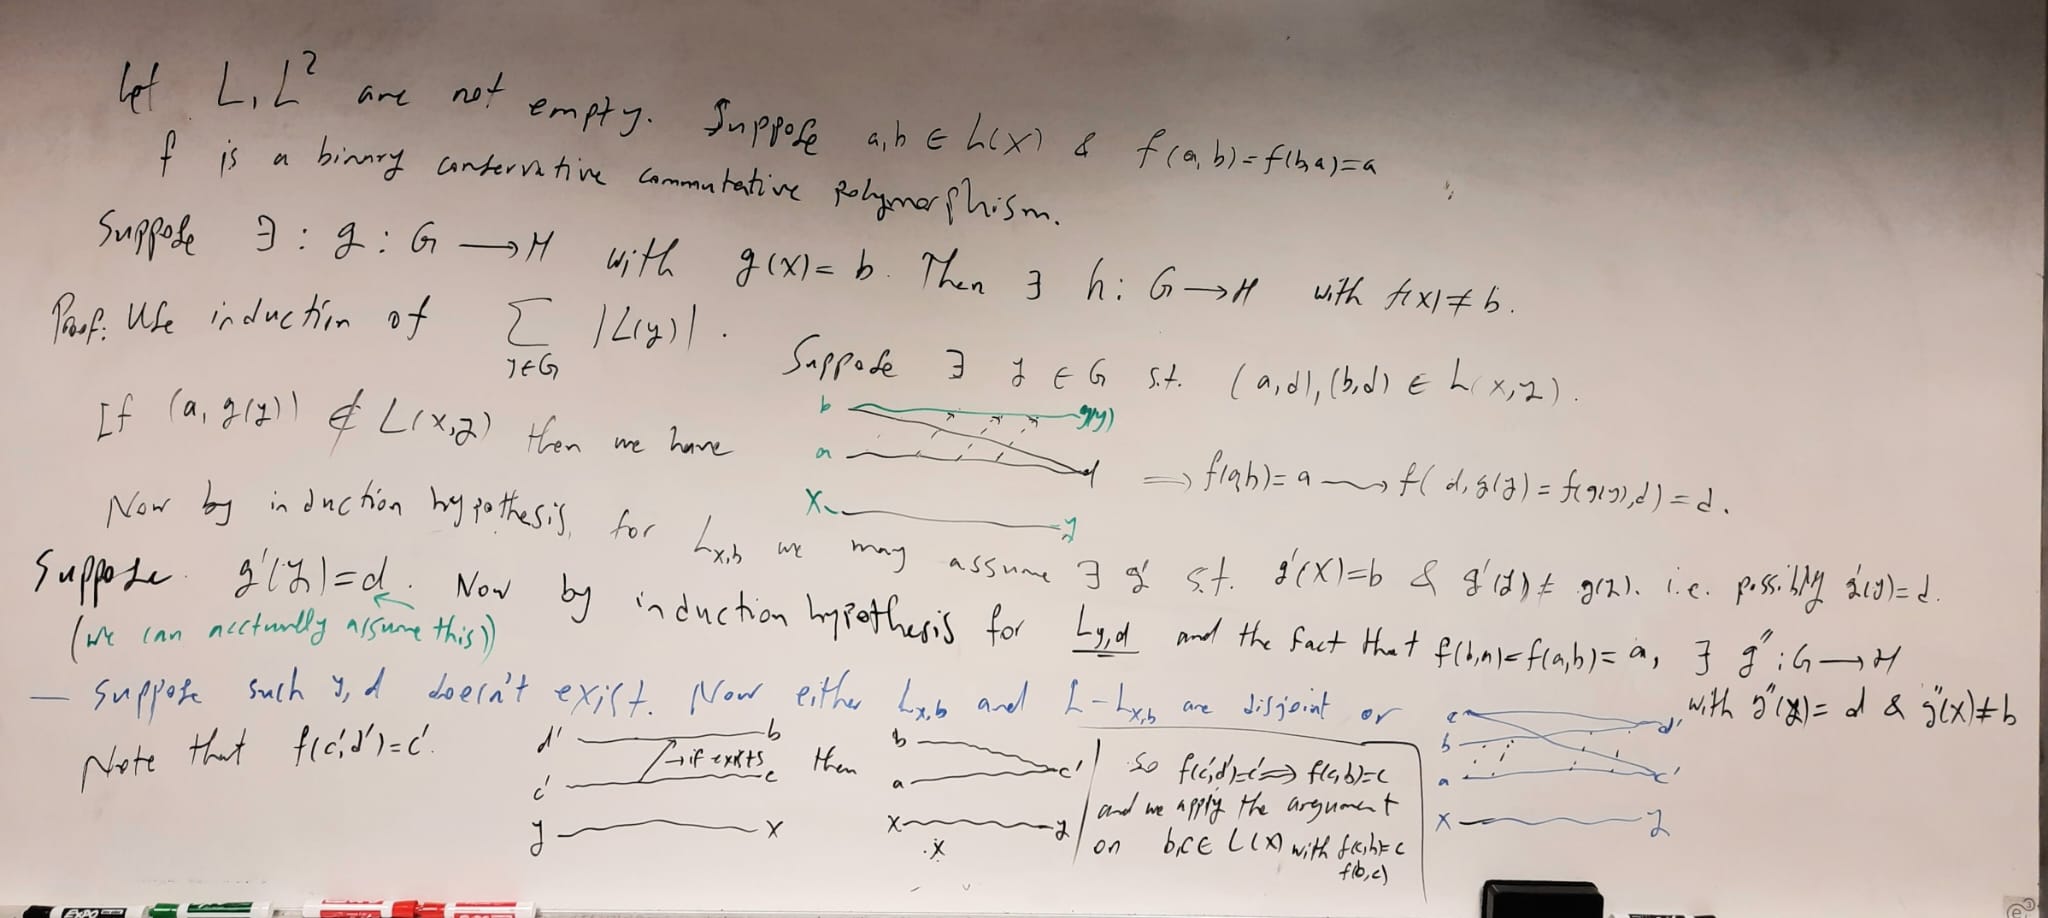 Let L, L² are not empty. Suppose a,b ∈ L(x) & f(a,b)=f(b,a)=a
f is a binary conservative commutative polymorphism.
Suppose ∃ : g : G → H with g(x)= b. Then ∃ h: G → H with f(x) ≠ b.
Proof: Use induction of ∑ |L(y)|.
y∈G
Suppose ∃ y ∈ G s.t. (a,d),(b,d) ∈ L(x,y).
If (a, g(y)) ∉ L(x,y) then we have
b g(y)
a d
x y
⇒ f(a,b)= a ⟶ f( d,g(y) = f(g(y),d) = d.
Now by induction hypothesis, for L_{x,b} we may assume ∃ g' s.t. g'(x)=b & g'(y) ≠ g(y). i.e. possibly g'(y)=d.
Suppose g'(y)=d. Now by induction hypothesis for L_{y,d} and the fact that f(b,a)=f(a,b)= a, ∃ g'' : G → H
(we can acctually assume this)
with g''(y)= d & g''(x) ≠ b
— Suppose such y, d doesn't exist. Now either L_{x,b} and L-L_{x,b} are disjoint or
Note that f(c',d')=c'.
d' b
→ if exists
c' c
y x
then
b
a c'
x y
x
So f(c',d')=c' ⇒ f(c,b)=c
and we apply the argument
on b,c ∈ L(x) with f(c,b)=c
f(b,c)
c d'
b
a c'
x y
EXPO